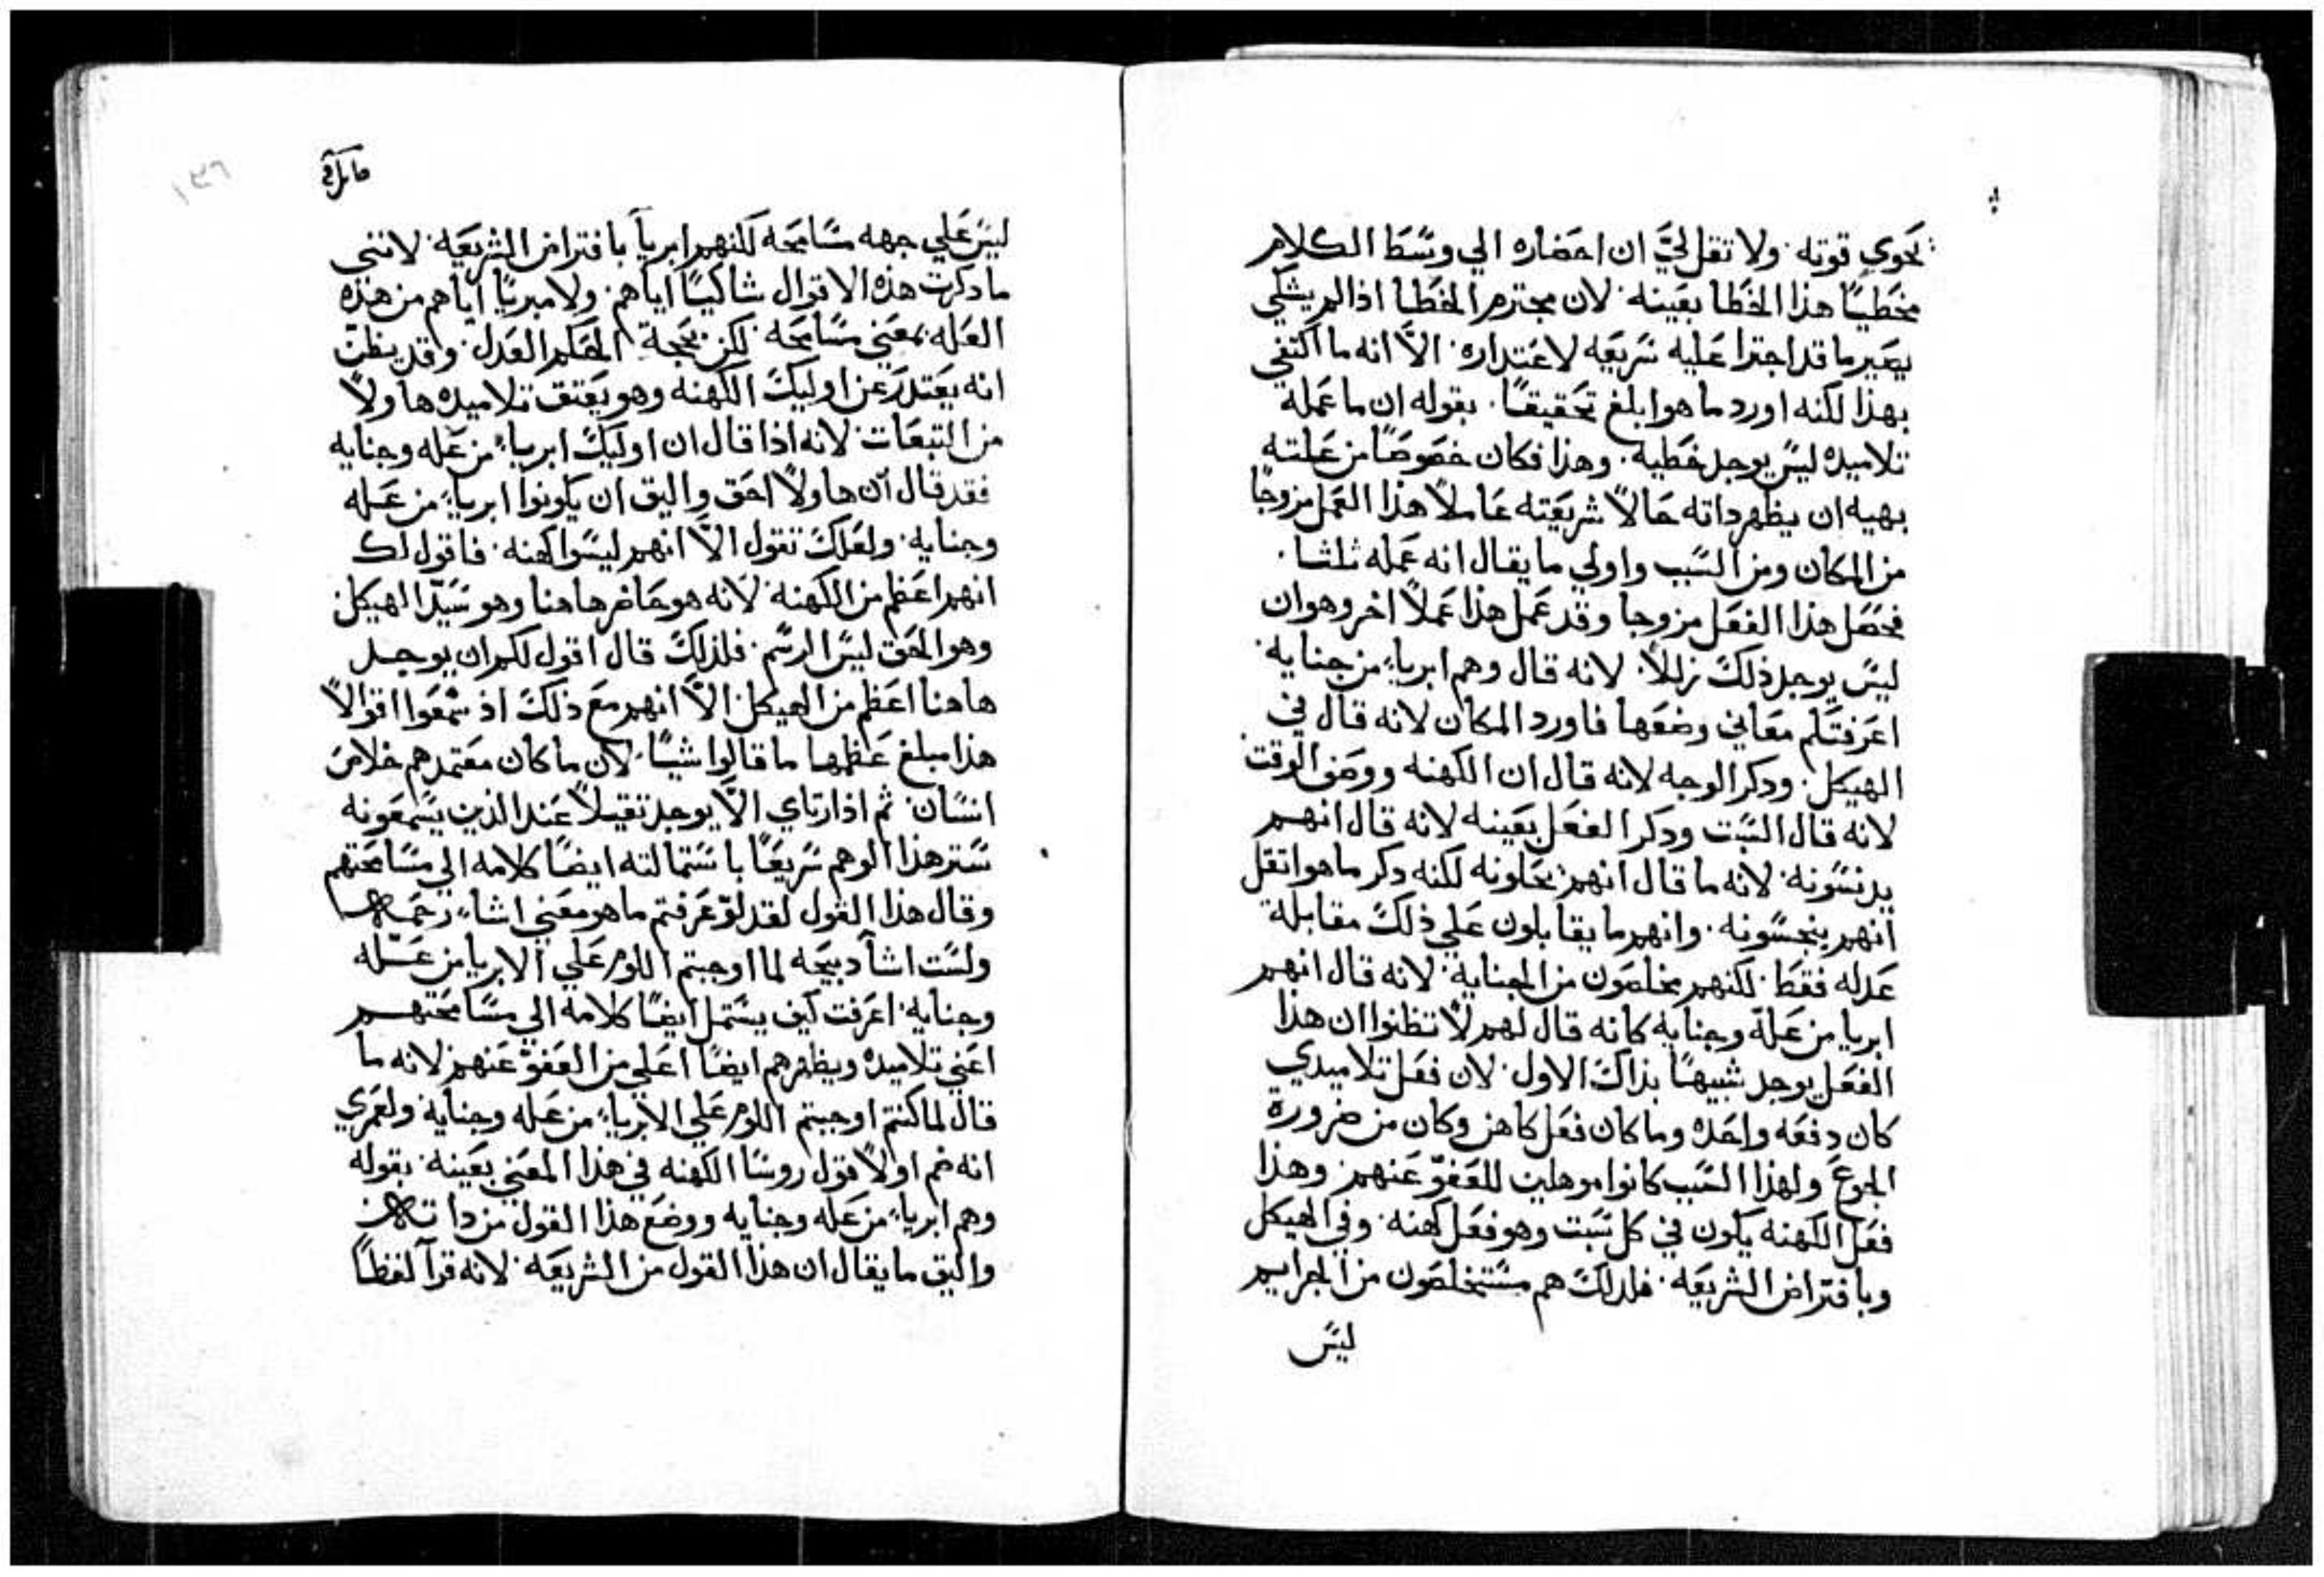 يحوي قوته. ولا تقل لي ان احضاره الي وسط الكلام
مخطيًا هذا الخطا بعينه. لان مجترم الخطا اذا لم يشكي
يصير ما قد اجترا عليه شريعه لاعتداره. الا انه ما اكتفي
بهذا لكنه اورد ما هو ابلغ تحقيقًا. بقوله ان ما عمله
تلاميده ليس يوجد خطيه. وهذا فكان خصوصًا من غلبته
بهيه ان يظهر داته حالاً شريعته عاملاً هذا العمل مزوجًا
من المكان ومن السبب واولي ما يقال انه عمله ثلثا.
فحصل هذا الفعل مزوجا وقد عمل هذا عملاً اخر وهو ان
ليس يوجد ذلك زللاً. لانه قال وهم ابرياء من جنايه.
اعرفتكم معاني وضعها فاورد المكان لانه قال في
الهيكل. ودكر الوجه لانه قال ان الكهنه ووصف الوقت
لانه قال السبت ودكر الفعل بعينه لانه قال انهم
يدنسونه. لانه ما قال انهم يحلونه لكنه دكر ما هو اتقل
انهم ينجسونه. وانهم ما يقابلون علي ذلك مقابلة
عدله فقط. لكنهم يخلصون من الجنايه. لانه قال انهم
ابريا من علة وجنايه كانه قال لهم لا تظنوا ان هذا
الفعل يوجد شبيهًا بذاك الاول. لان فعل تلاميدي
كان دفعه واحده وما كان فعل كاهن وكان من ضرورة
الجوع ولهذا السبب كانوا موهلين للعفو عنهم. وهذا
فعل الكهنه يكون في كل سبت وهو فعل كهنه. وفي الهيكل
وبافتراض الشريعه. فلدلك هم مستخلصون من الجرايم
ليس
١٣٦
ليس علي جهه مسامحه لكنهم ابريآ بافتراض الشريعه. لانني
ما دكرت هذه الاقوال شاكيًا اياهم. ولا مبريًا اياهم من هذه
العله بمعني مسامحه. لكن بحجة الحكم العدل. وقد يظن
انه يعتدر عن اوليك الكهنه وهو يعتق تلاميده هاولاً
من التبعات. لانه اذا قال ان اوليك ابرياء من عله وجنايه
فقد قال ان هاولاً احق واليق ان يكونوا ابرياء من عله
وجنايه. ولعلك تقول الا انهم ليسوا كهنه. فاقول لك
انهم اعظم من الكهنه. لانه هو حاضر هاهنا وهو سيد الهيكل
وهو الحق ليس الرسم. فلذلك قال اقول لكم ان يوجد
هاهنا اعظم من الهيكل. الا انهم مع ذلك اذ سمعوا اقوالاً
هذا مبلغ عظمها ما قالوا شيًا. لان ما كان معتمدهم خلاص
انسان. ثم اذ ارتاي الا يوجد تقيلاً عند الذين يسمعونه
ستر هذا الوهم سريعًا باستمالته ايضًا كلامه الي مسامحتهم
وقال هذا القول لقد لو عرفتم ما هو معني اشاء رحمه
ولست اشآ دبيحه لما اوجبتم اللوم علي الابريا من عله
وجنايه. اعرفت كيف يستمل ايضًا كلامه الي مسامحتهم
اعني تلاميده ويظهرهم ايضًا اعلي من العفو عنهم. لانه ما
قال لما كنتم اوجبتم اللوم علي الابرياء من عله وجنايه. ولعمري
انه ضم اولاً قول روسا الكهنه في هذا المعني بعينه. بقوله
وهم ابرياء من عله وجنايه ووضع هذا القول من داته
واليق ما يقال ان هذا القول من الشريعه. لانه قرآ لفظًا